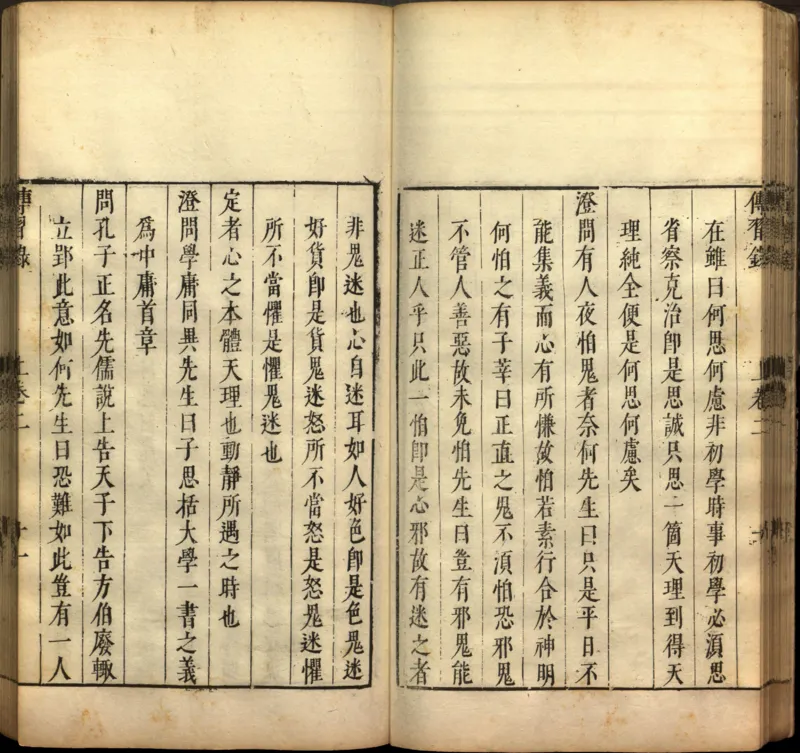 傳習錄 上卷二
在雖曰何思何慮非初學時事初學必湏思
省察克治即是思誠只思一箇天理到得天
理純全便是何思何慮矣
澄問有人夜怕鬼者奈何先生曰只是平日不
能集義而心有所慊故怕若素行合於神明
何怕之有子莘曰正直之鬼不湏怕恐邪鬼
不管人善惡故未免怕先生曰豈有邪鬼能
迷正人乎只此一怕即是心邪故有迷之者
非鬼迷也心自迷耳如人好色即是色鬼迷
好貨即是貨鬼迷怒所不當怒是怒鬼迷懼
所不當懼是懼鬼迷也
定者心之本體天理也動靜所遇之時也
澄問學庸同異先生曰子思括大學一書之義
爲中庸首章
問孔子正名先儒說上告天子下告方伯廢輙
立郢此意如何先生曰恐難如此豈有一人
傳習錄 上卷二 十一